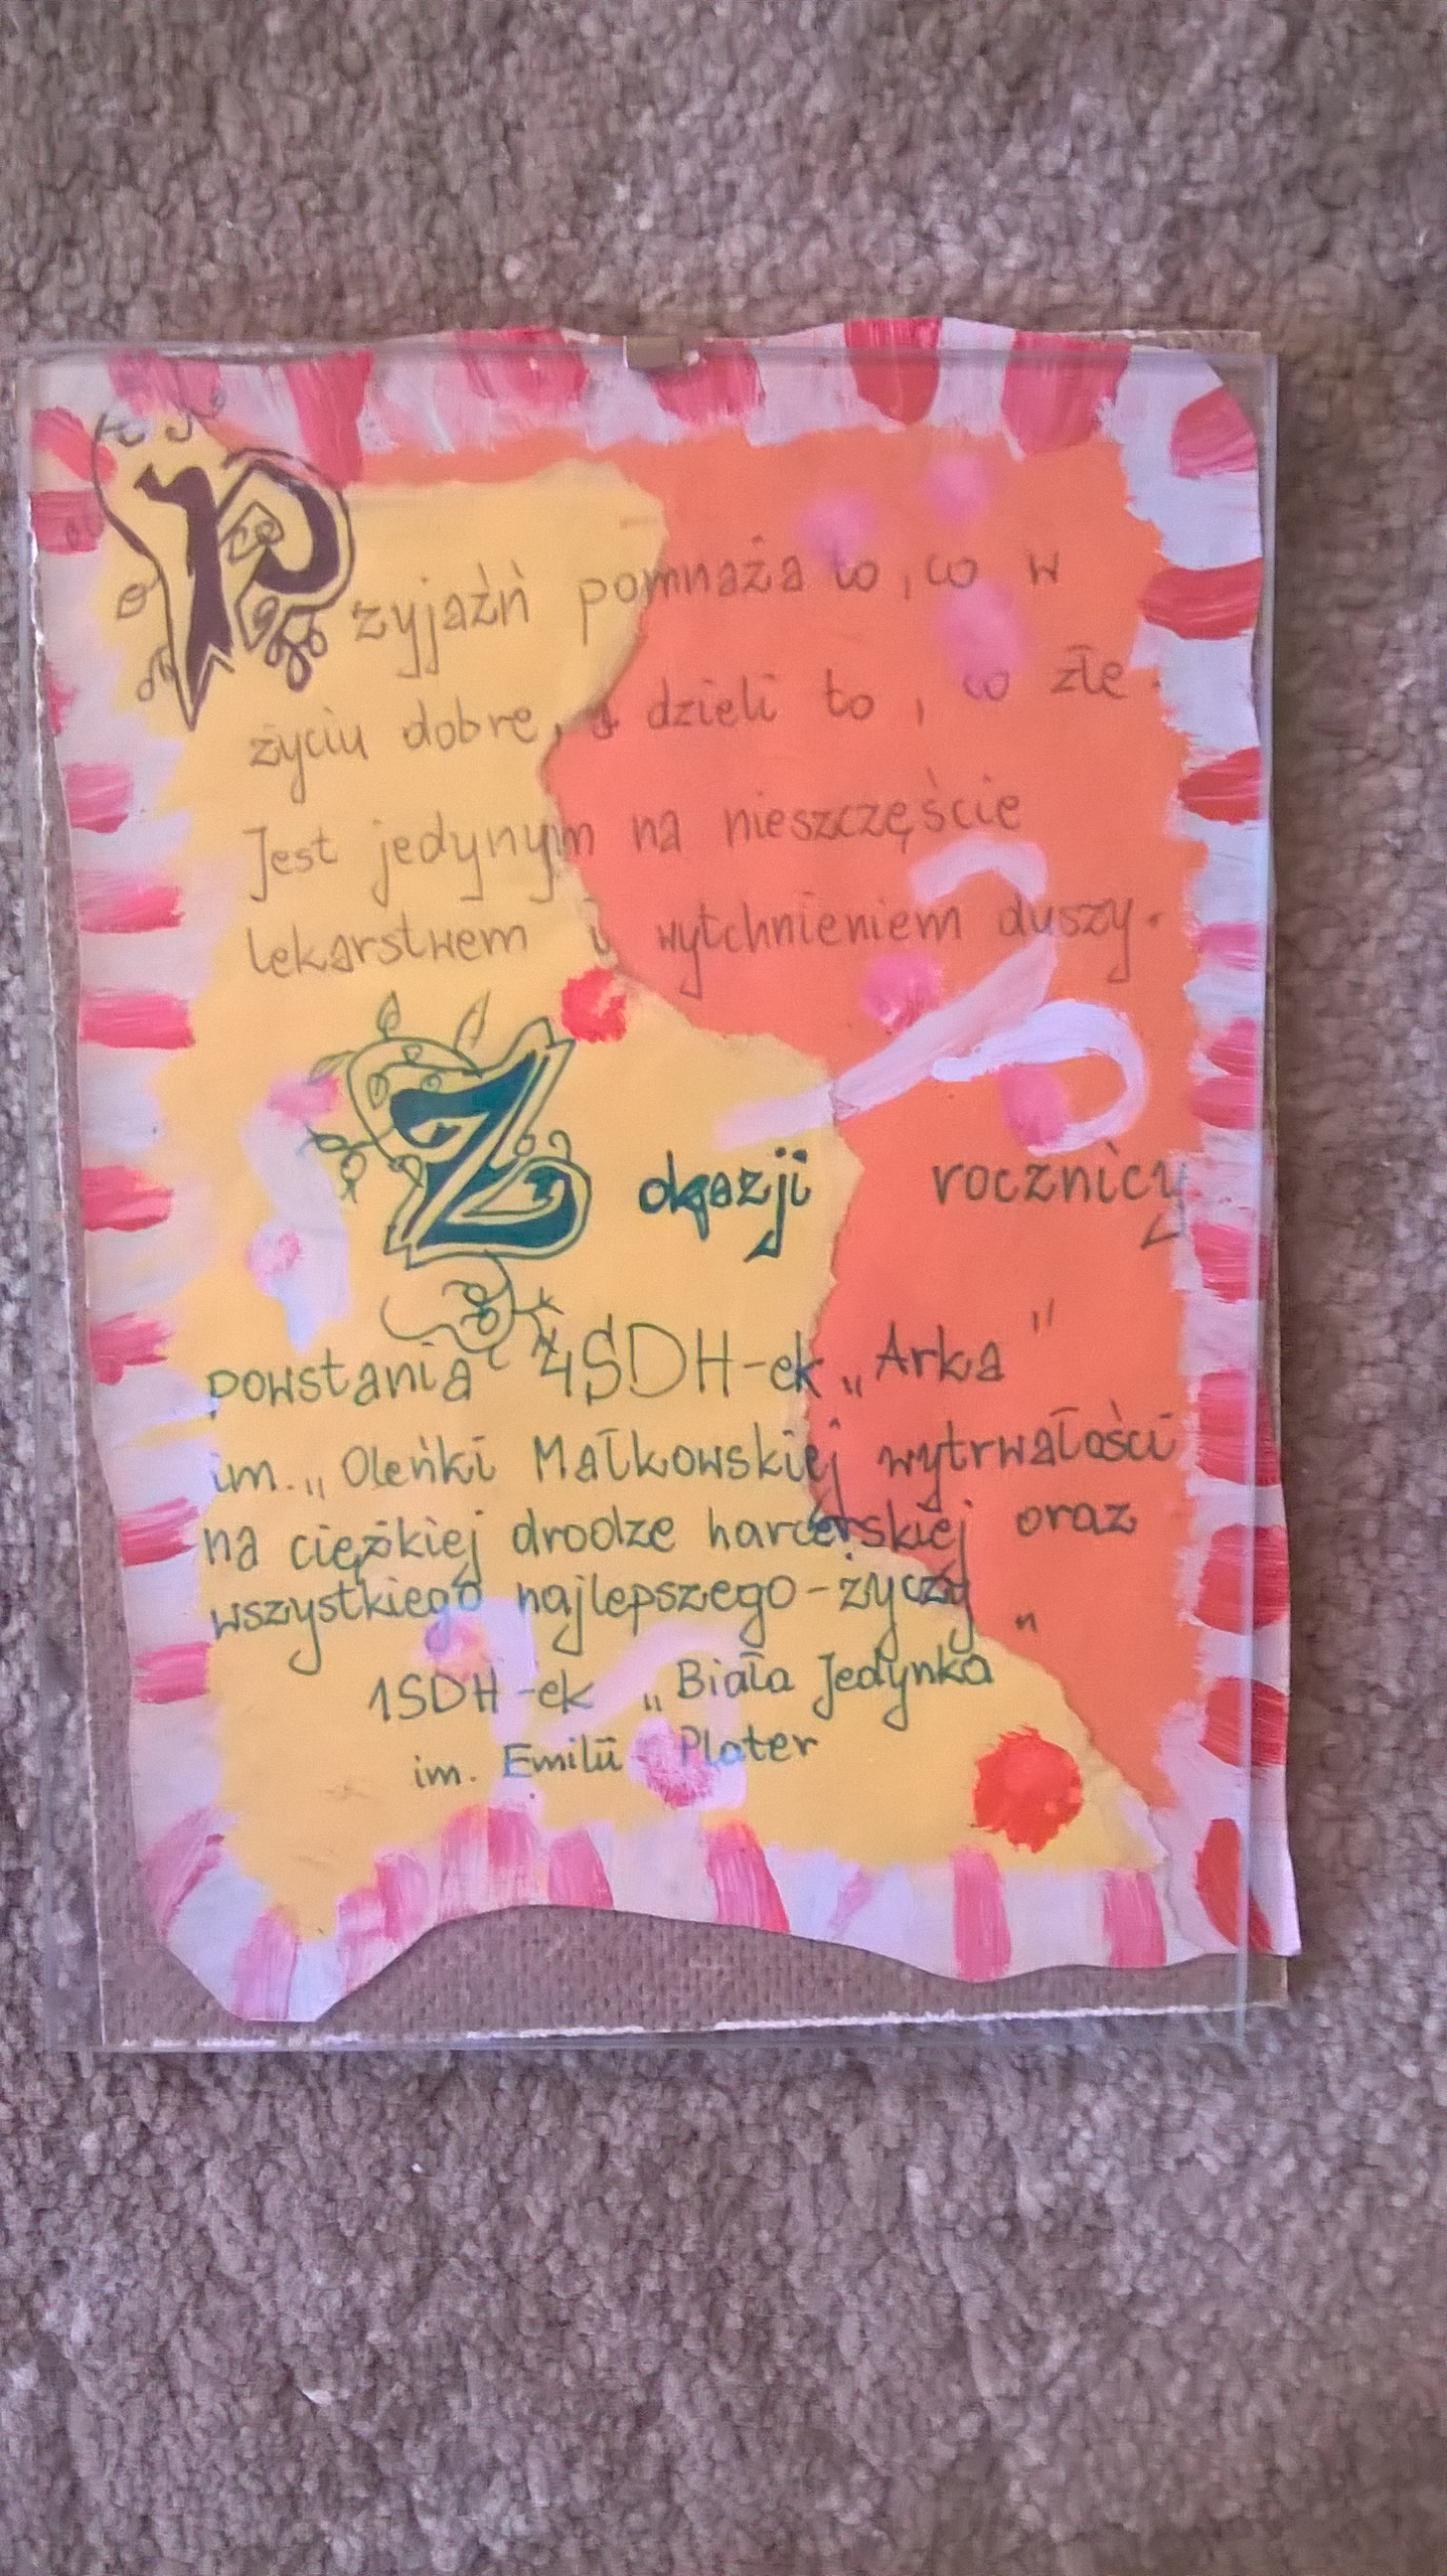 Pzyjaźń pomnaża to, co w
życiu dobre, a dzieli to, co złe.
Jest jedynym na nieszczęście
lekarstwem i wytchnieniem duszy.
Z okazji rocznicy
powstania 4SDH-ek „Arka"
im. „Oleńki Małkowskiej wytrwałości
na ciężkiej drodze harcerskiej oraz
wszystkiego najlepszego - życzy
1SDH-ek „Biała Jedynka"
im. Emilii Plater